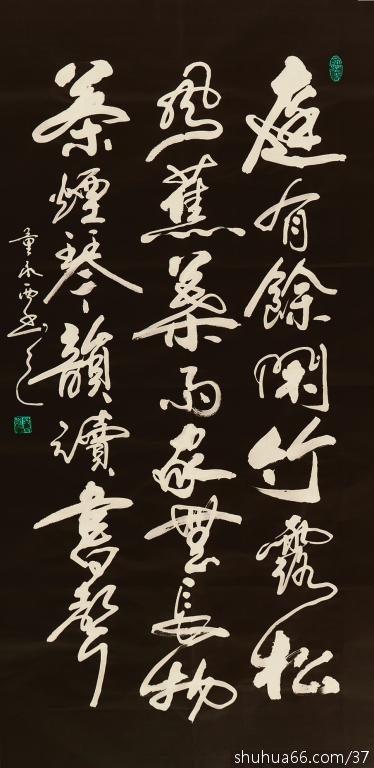 庭有餘閑竹露松
風蕉葉雨家無長物
茶煙琴韻讀書聲
shuhua66.com/37